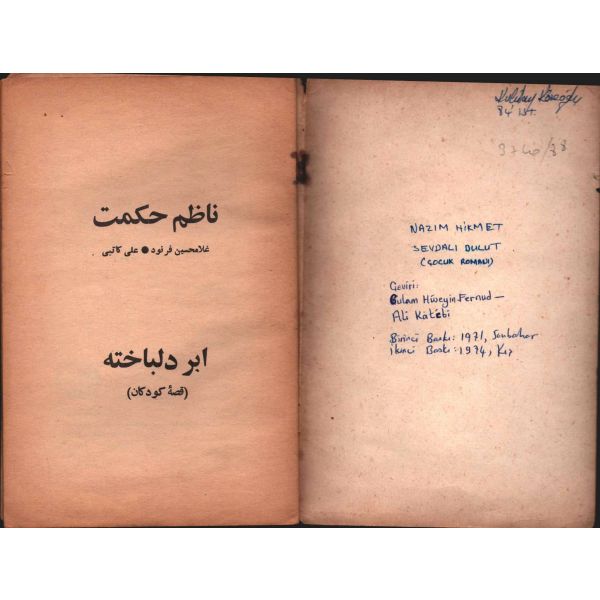 ناظم حکمت
غلامحسین فرنود ● علی کاتبی
ابر دلباخته
(قصهٔ کودکان)
84 ist.
NAZIM HİKMET
SEVDALI BULUT
(ÇOCUK ROMANI)
Çeviri:
Gulam Hüseyin Fernud —
Ali Katebi
Birinci Baskı: 1971, Sonbahar
İkinci Baskı: 1974, Kış